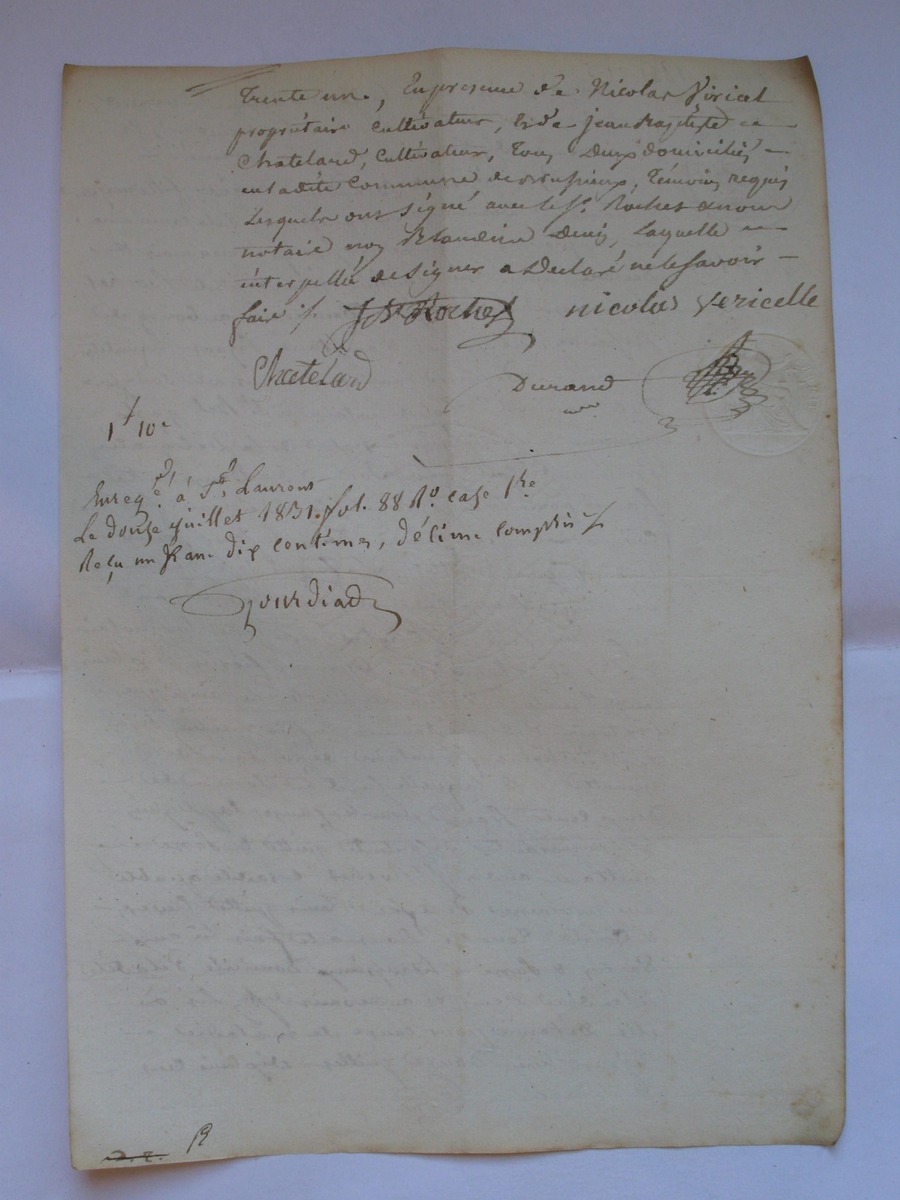 Trente un, En présence de Nicolas Viricel
propriétaire cultivateur, & de Jean Baptiste
Chateland, cultivateur, tous deux domiciliés
en ladite Commune de, témoins requis
Lesquels ont signé avec le Sr. Rochet & nous
notaire non Blandine Denis, laquelle
interpellée de signer a déclaré ne le savoir
faire /. Rochet nicolas Vericelle
Chateland Durand
1f 10c
Enregé. à St. Laurent
Le douze juillet 1831. fol. 88 Ro. case 1re
Reçu un franc dix centimes, décime compris /.
Gourdiad
R